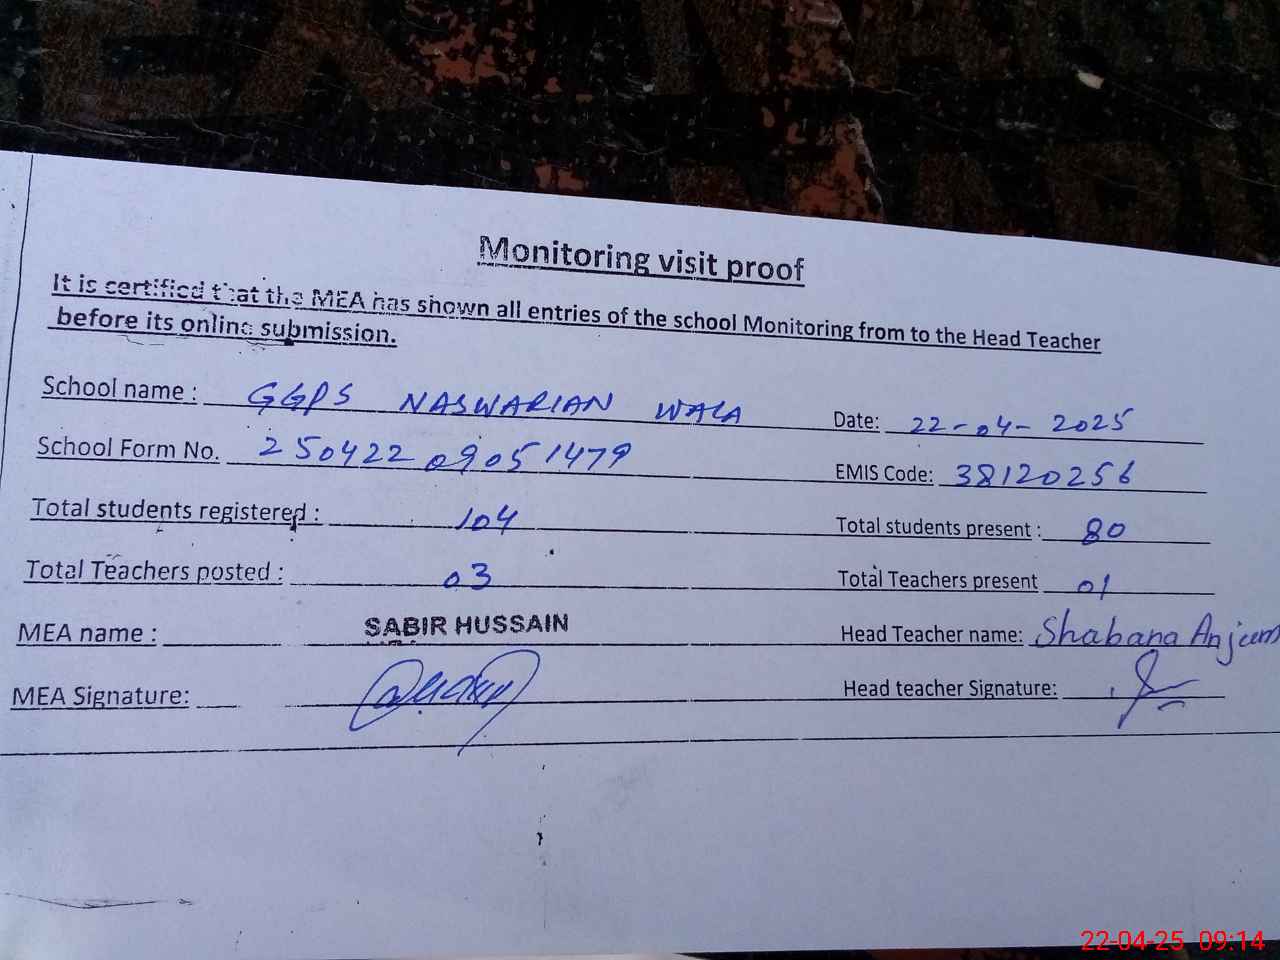 Monitoring visit proof
It is certified that the MEA has shown all entries of the school Monitoring from to the Head Teacher
before its online submission.
School name : GGPS NASWARIAN WALA Date: 22-04-2025
School Form No. 250422 09051479 EMIS Code: 38120256
Total students registered : 104 Total students present : 80
Total Teachers posted : 03 Total Teachers present 01
MEA name : SABIR HUSSAIN Head Teacher name: Shabana Anjum
MEA Signature: Head teacher Signature:
22-04-25 09:14